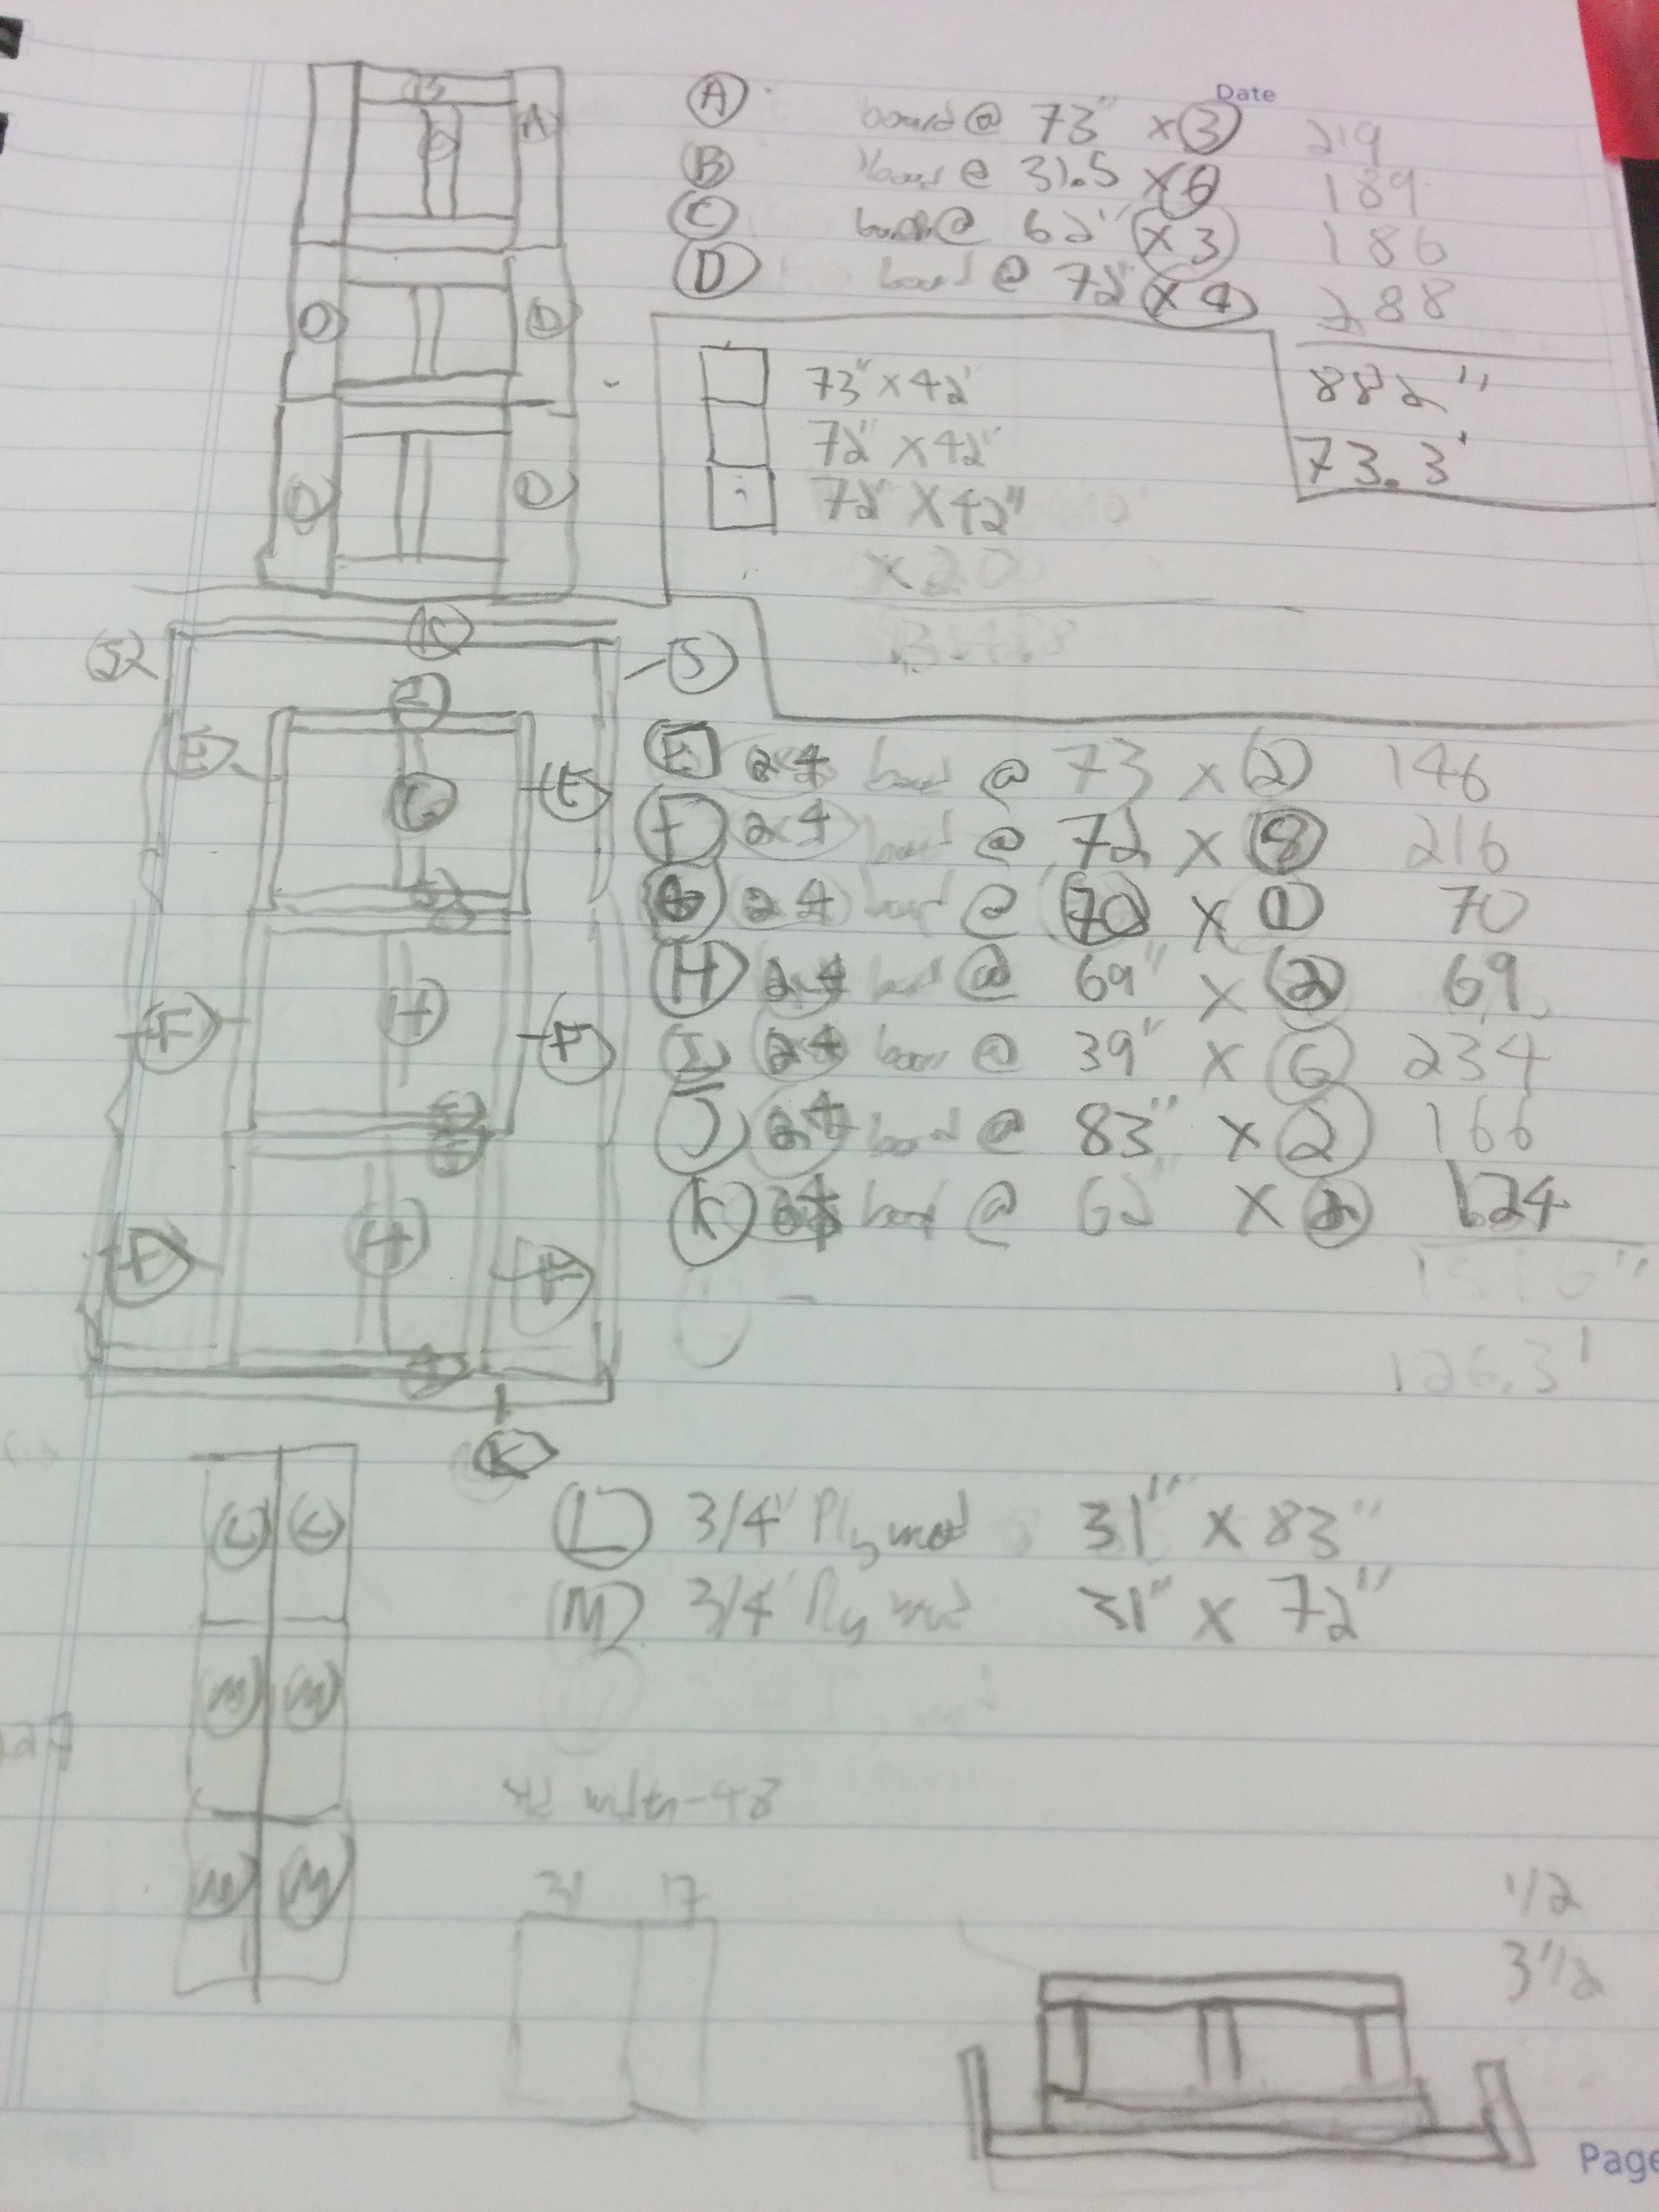 Date
A board @ 73" x 3 219
B board @ 31.5 x 6 189
C board @ 62" x 3 186
D board @ 72" x 4 288
882"
73.3'
73" x 42'
72" x 42"
72" x 42"
x 20
B A
D D
D D
K
J J
I
E E
G
F H F
F H F
K
E 24 board @ 73 x 2 146
F 24 board @ 72 x 8 216
G 24 board @ 70 x 1 70
H 24 board @ 69" x 2 69
I 24 board @ 39" x 6 234
J 24 board @ 83" x 2 166
K 24 board @ 62" x 2 124
126.3'
L L
M M
M M
L 3/4" Plywood 31" x 83"
M 3/4" Plywood 31" x 72"
width-48
31 17
1/2
3 1/2
Page